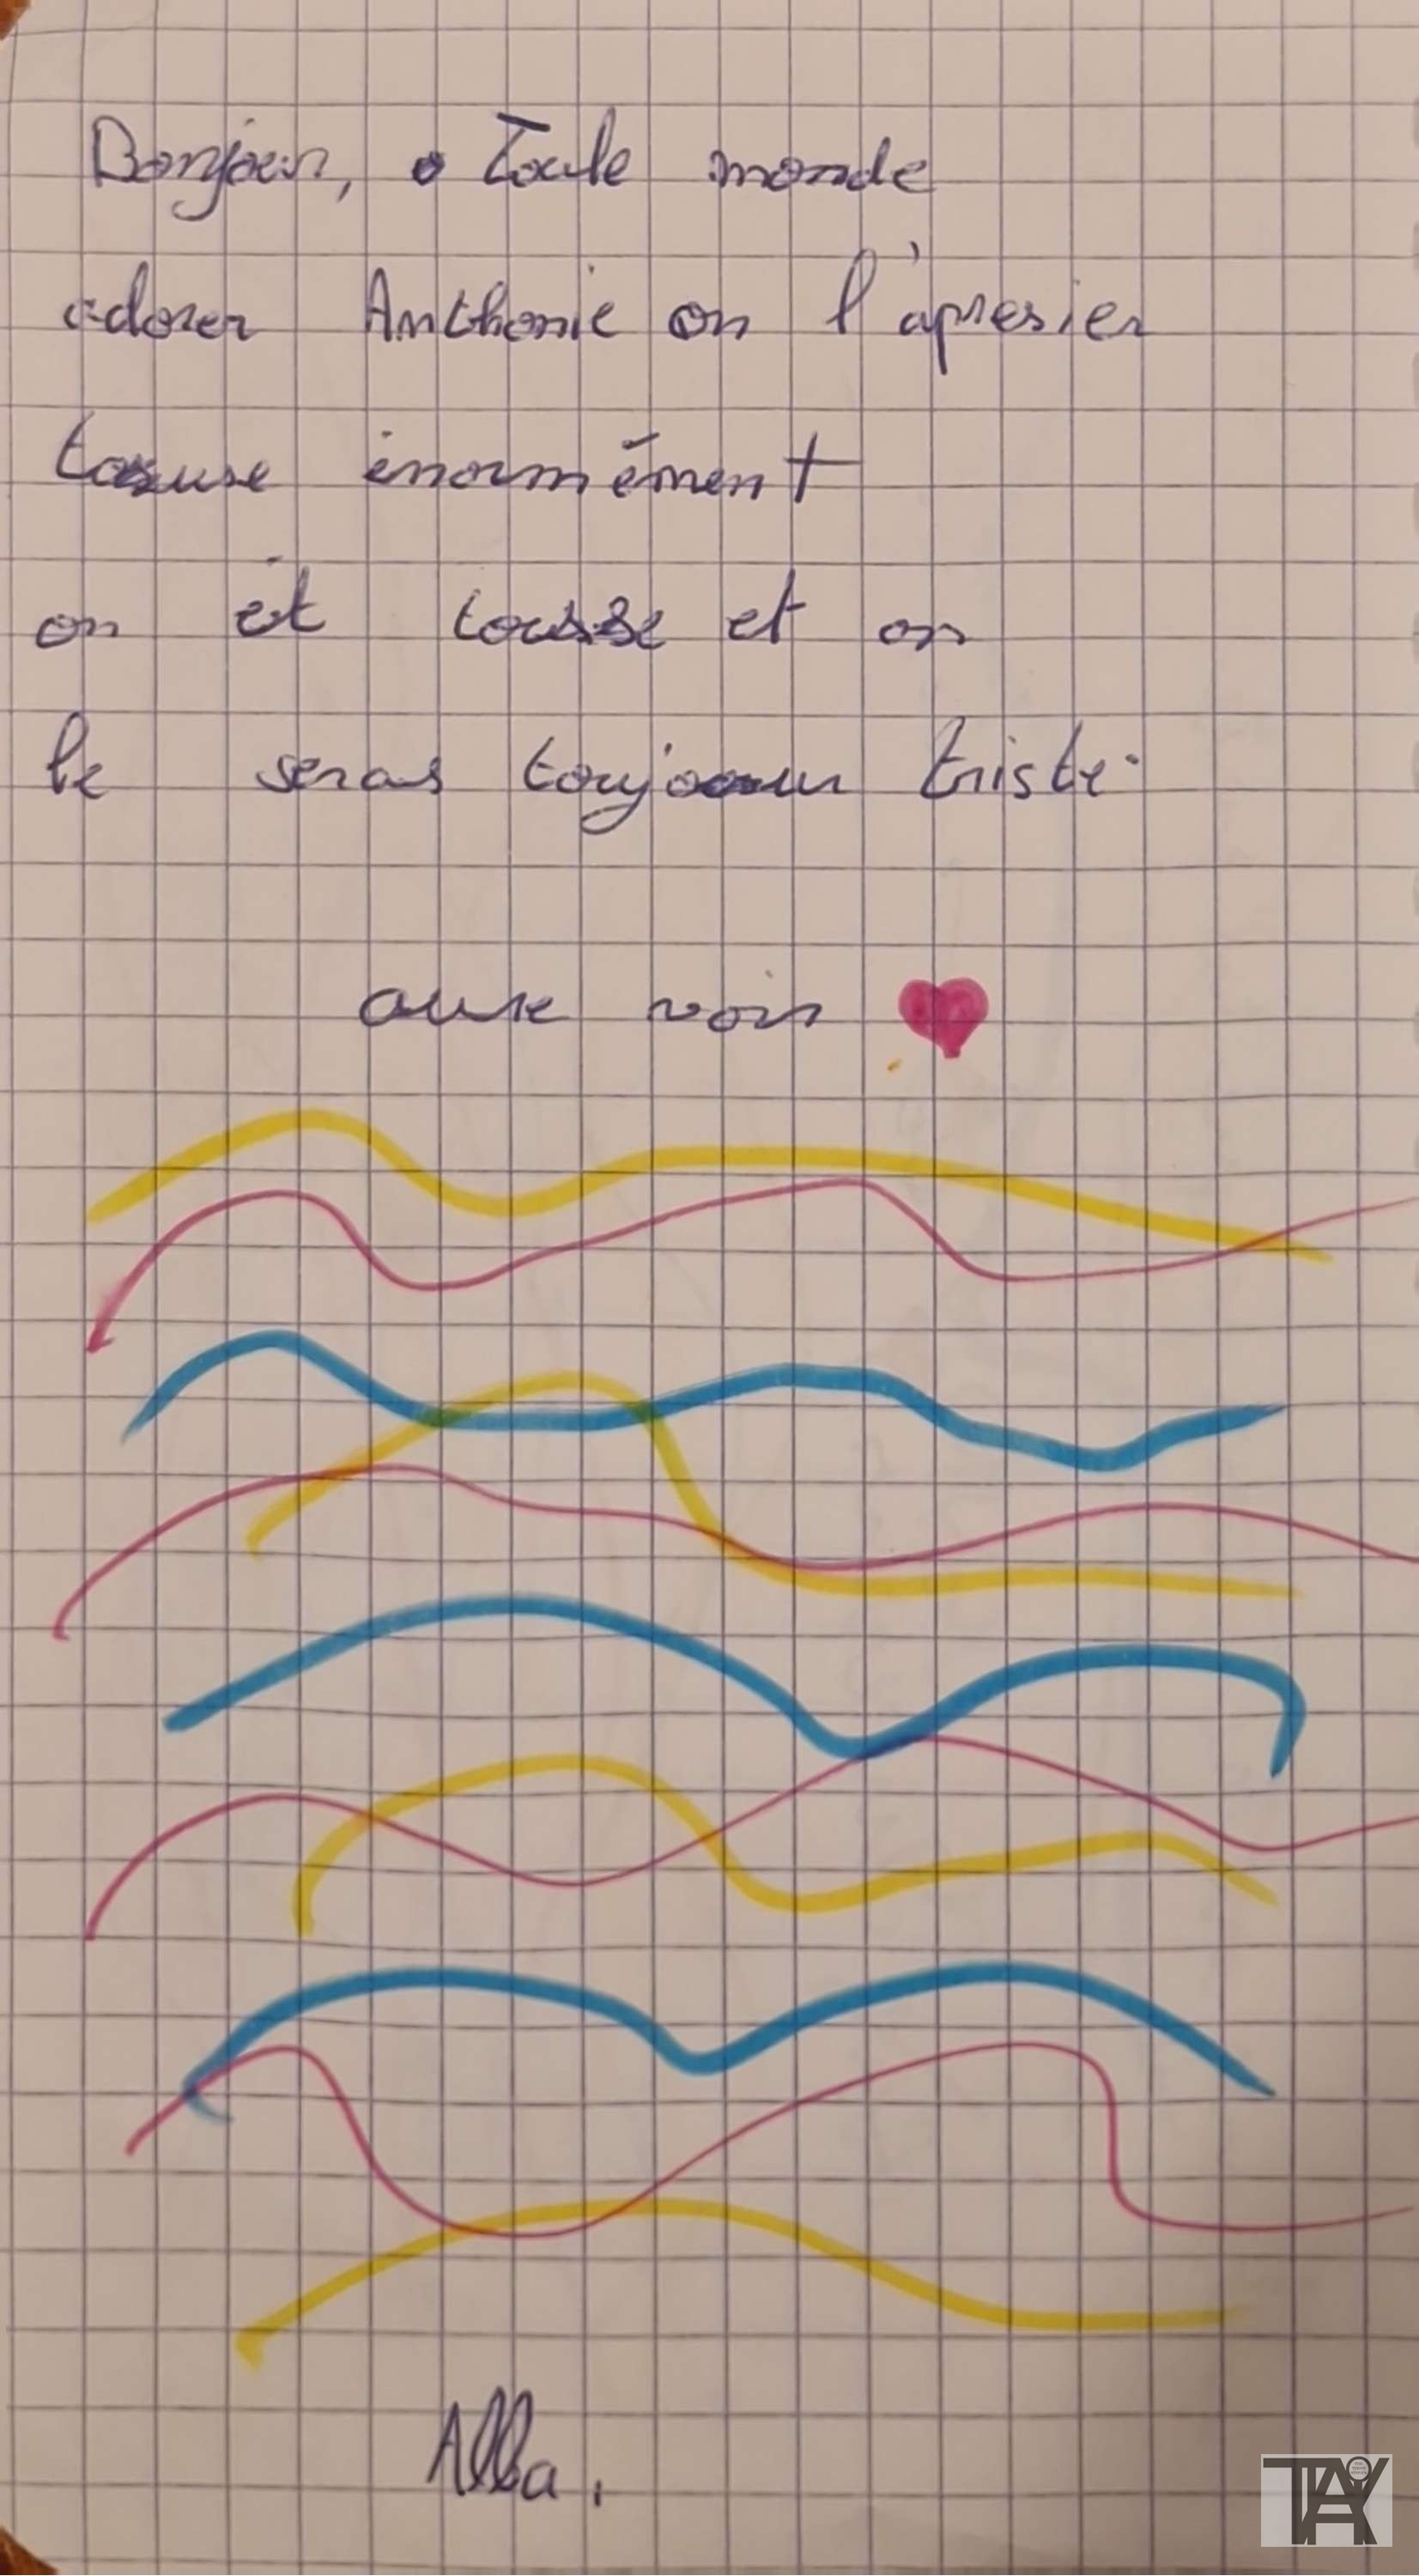 Bonjour, Toule monde
adorer Anthonie on l'apresier
touse énormément
on ét tousse et on
le seras toujour triste.
aure voir
Alba.
TAY